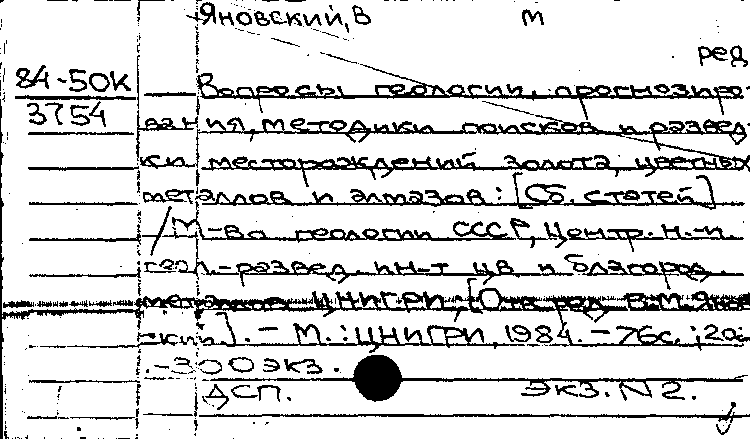 Яновский, В М
ред
84-50К Вопросы геологии, прогнозиро-
3754 вания, методики поисков и развед-
ки месторождений золота, цветных
металлов и алмазов: [Сб. статей]
/М-во геологии СССР, Центр. н.-и.
геол.-развед. ин-т цв. и благород.
металлов ЦНИГРИ; [Отв. ред. В.М. Янов-
ский]. – М.: ЦНИГРИ, 1984. – 76с.; 20с
.-300 экз.
ДСП. Экз. N2.